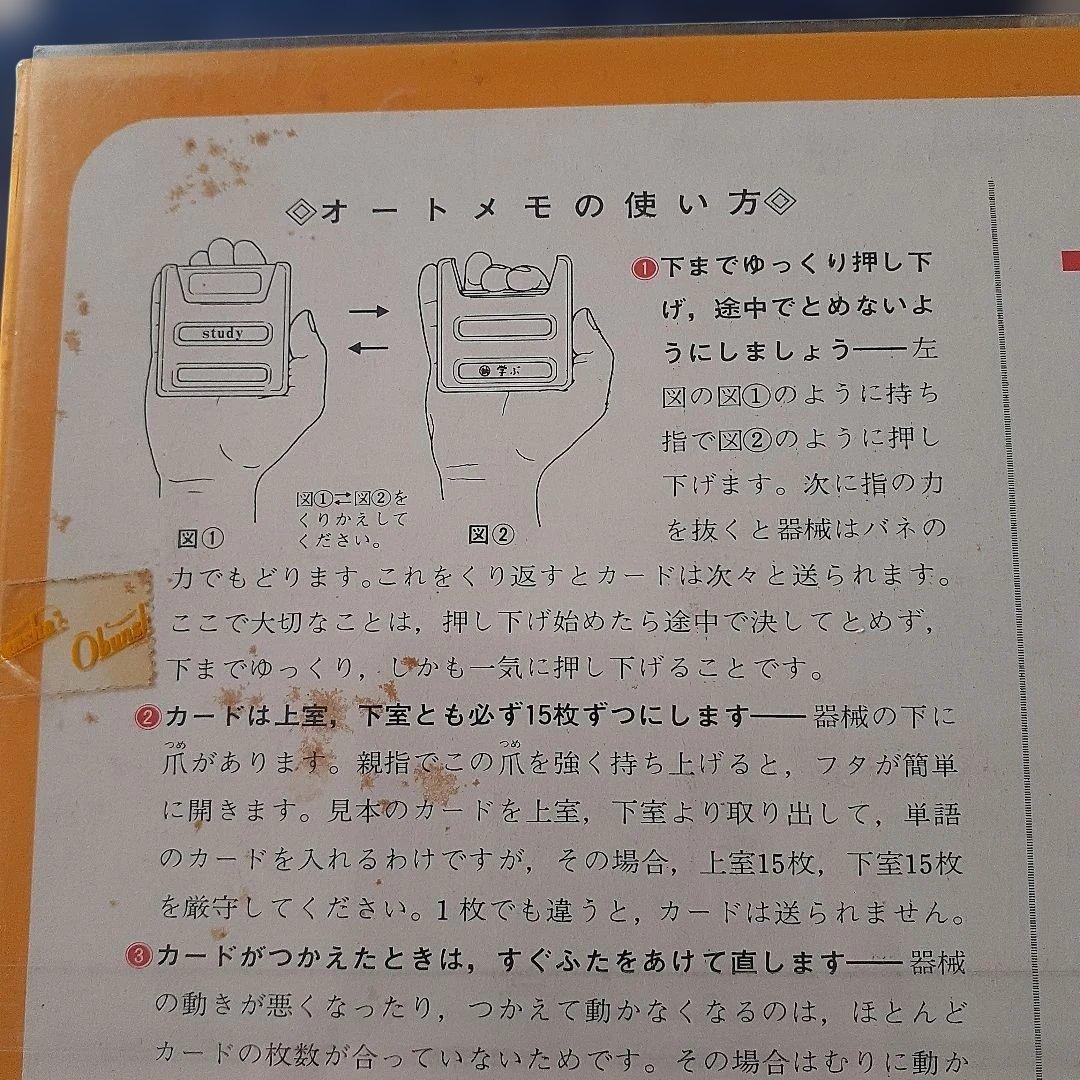 ◇オートメモの使い方◇
study
動 学ぶ
図①⇄図②を
くりかえして
ください。
図①
図②
❶下までゆっくり押し下
げ，途中でとめないよ
うにしましょう――左
図の図①のように持ち
指で図②のように押し
下げます。次に指の力
を抜くと器械はバネの
力でもどります。これをくり返すとカードは次々と送られます。
ここで大切なことは，押し下げ始めたら途中で決してとめず，
下までゆっくり，しかも一気に押し下げることです。
❷カードは上室，下室とも必ず15枚ずつにします――器械の下に
爪があります。親指でこの爪を強く持ち上げると，フタが簡単
に開きます。見本のカードを上室，下室より取り出して，単語
のカードを入れるわけですが，その場合，上室15枚，下室15枚
を厳守してください。1枚でも違うと，カードは送られません。
❸カードがつかえたときは，すぐふたをあけて直します――器械
の動きが悪くなったり，つかえて動かなくなるのは，ほとんど
カードの枚数が合っていないためです。その場合はむりに動か